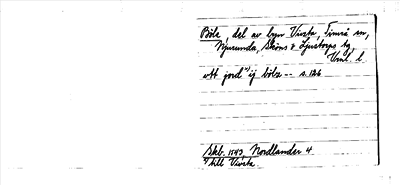 Böle, del av byn Vivsta, Timrå sn,
Njurunda, Sköns & Ljustorps tg,
Vnl. l.
ett jord ¹⁾ ij bölz -- s. 126
Skb. 1543 Nordlander 4
¹⁾ till Vivsta